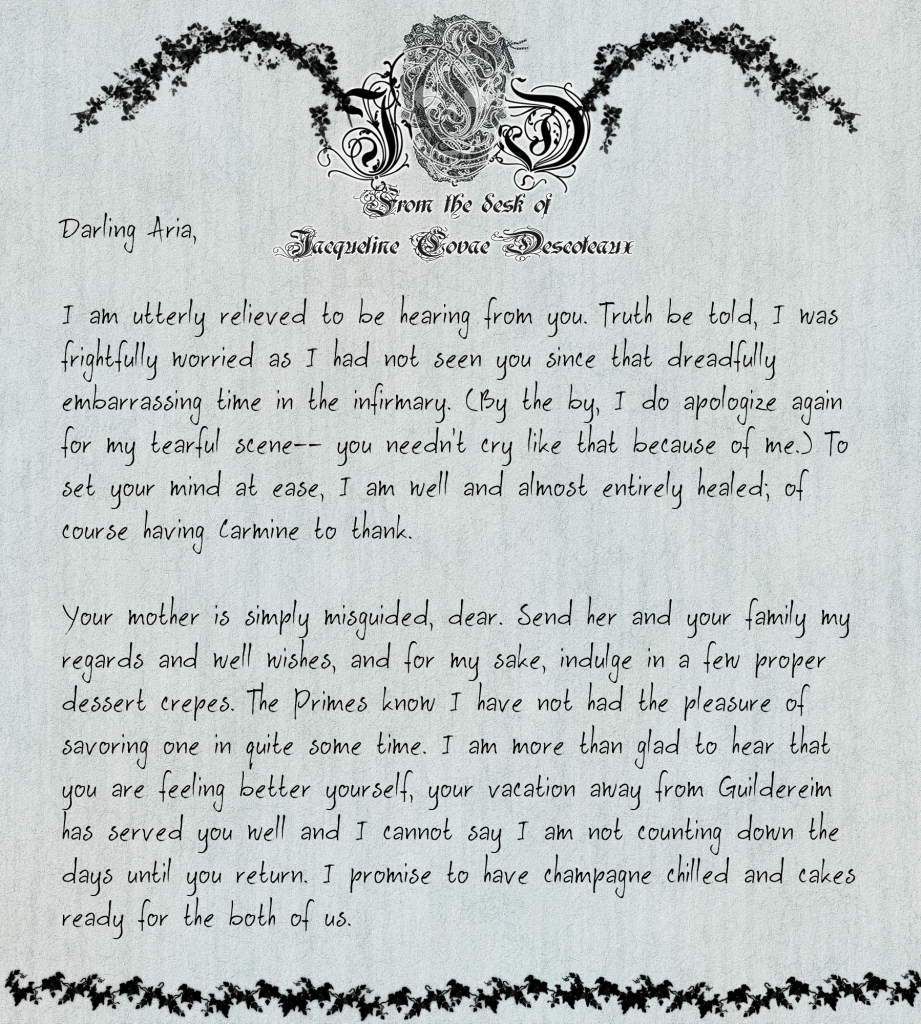 J C D
From the desk of
Jacqueline Covae Descoteaux
Darling Aria,
I am utterly relieved to be hearing from you. Truth be told, I was
frightfully worried as I had not seen you since that dreadfully
embarrassing time in the infirmary. (By the by, I do apologize again
for my tearful scene-- you needn't cry like that because of me.) To
set your mind at ease, I am well and almost entirely healed; of
course having Carmine to thank.
Your mother is simply misguided, dear. Send her and your family my
regards and well wishes, and for my sake, indulge in a few proper
dessert crepes. The Primes know I have not had the pleasure of
savoring one in quite some time. I am more than glad to hear that
you are feeling better yourself, your vacation away from Guildereim
has served you well and I cannot say I am not counting down the
days until you return. I promise to have champagne chilled and cakes
ready for the both of us.